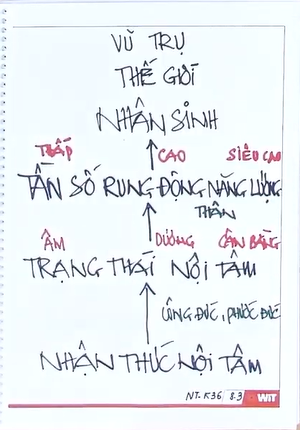 VŨ TRỤ
THẾ GIỚI
NHÂN SINH
THẤP CAO SIÊU CAO
TẦN SỐ RUNG ĐỘNG NĂNG LƯỢNG
THÂN
ÂM DƯƠNG CÂN BẰNG
TRẠNG THÁI NỘI TÂM
CÔNG ĐỨC, PHƯỚC ĐỨC
NHẬN THỨC NỘI TÂM
NT.K36 8.3 WIT